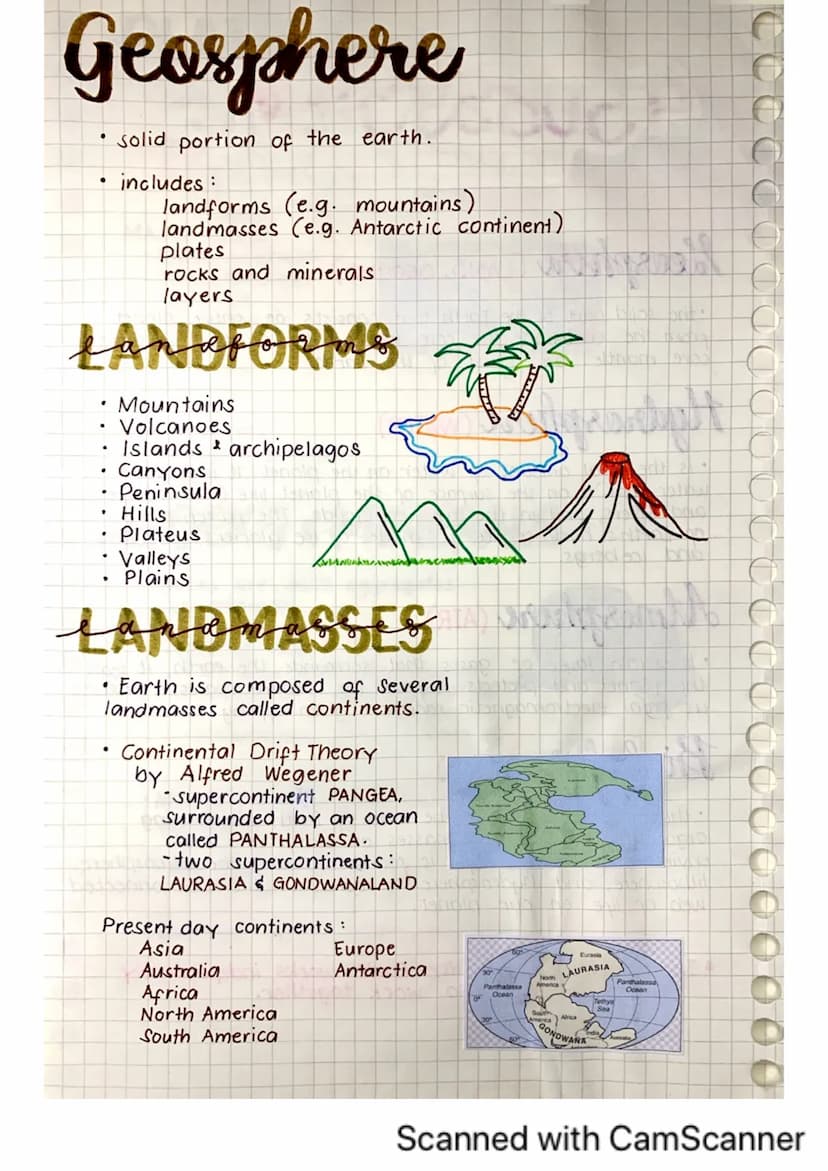 Geosphere
• solid portion of the earth.
• includes:
landforms (e.g. mountains)
landmasses (e.g. Antarctic continent)
plates
rocks and minerals
layers
LANDFORMS
landforms
• Mountains
• Volcanoes
• Islands & archipelagos
• Canyons
• Peninsula
• Hills
• Plateus
• Valleys
• Plains
LANDMASSES
landmasses
• Earth is composed of several
landmasses called continents.
• Continental Drift Theory
by Alfred Wegener
-supercontinent PANGEA,
surrounded by an ocean
called PANTHALASSA.
-two supercontinents:
LAURASIA & GONDWANALAND
Present day continents:
Asia Europe
Australia Antarctica
Africa
North America
South America
60°
Eurasia
30°
North
America
LAURASIA
Panthalassa
Ocean
Panthalassa
Ocean
0°
Tethys
Sea
30°
South
America
Africa
GONDWANA
India
Australia
60°
Scanned with CamScanner